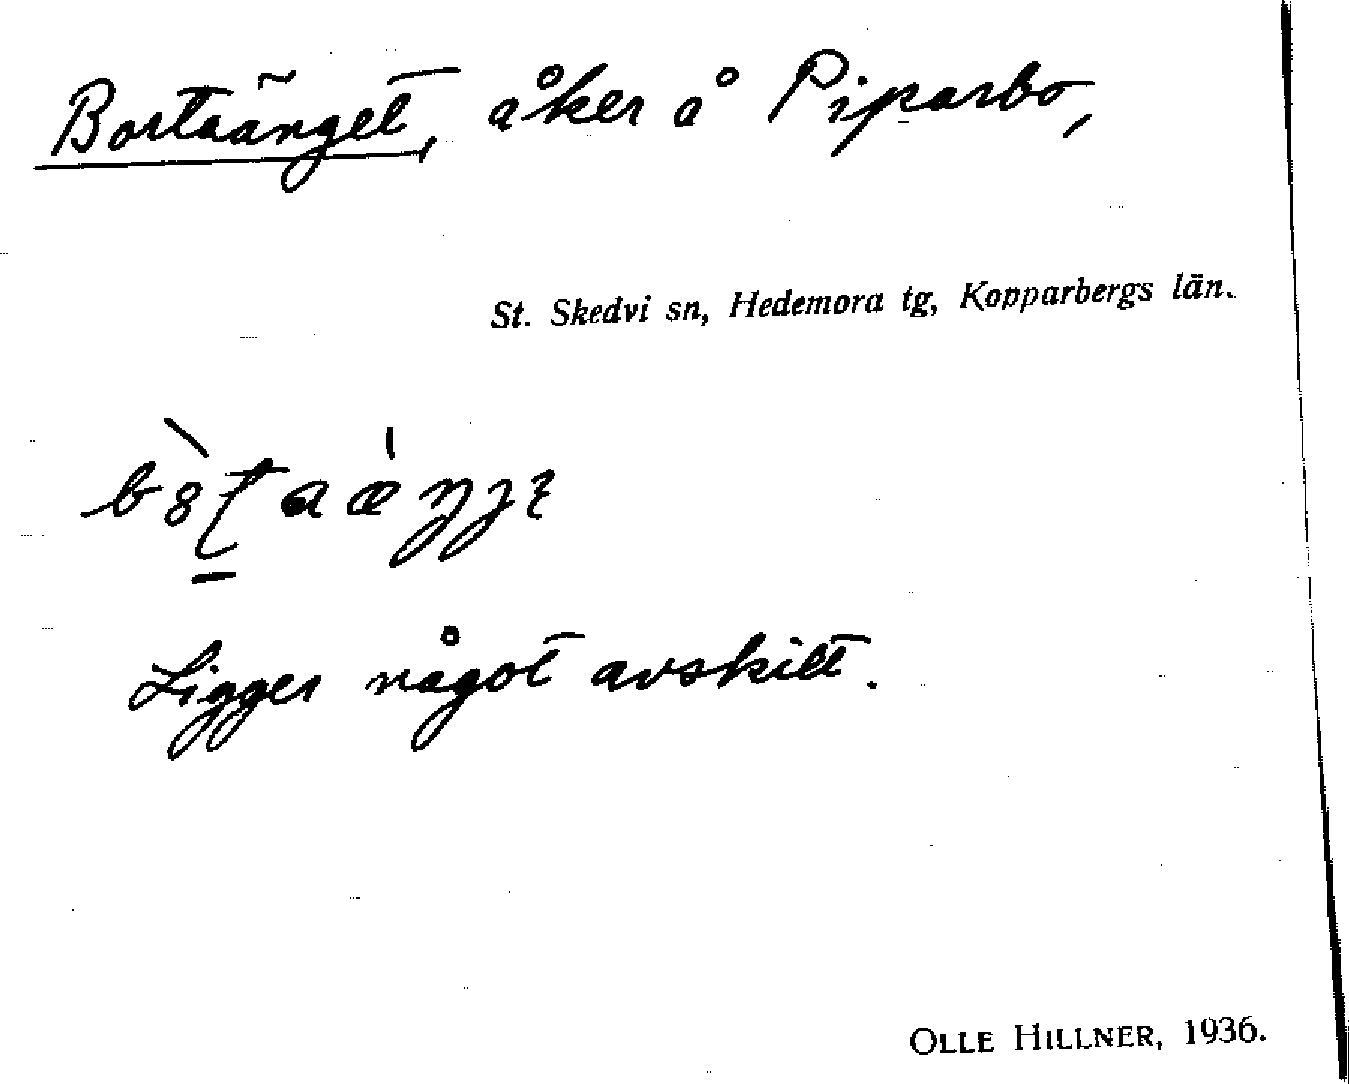 Bortaänget, åker å Piparbo,
St. Skedvi sn, Hedemora tg, Kopparbergs län.
Ligger något avskilt.
OLLE HILLNER, 1936.